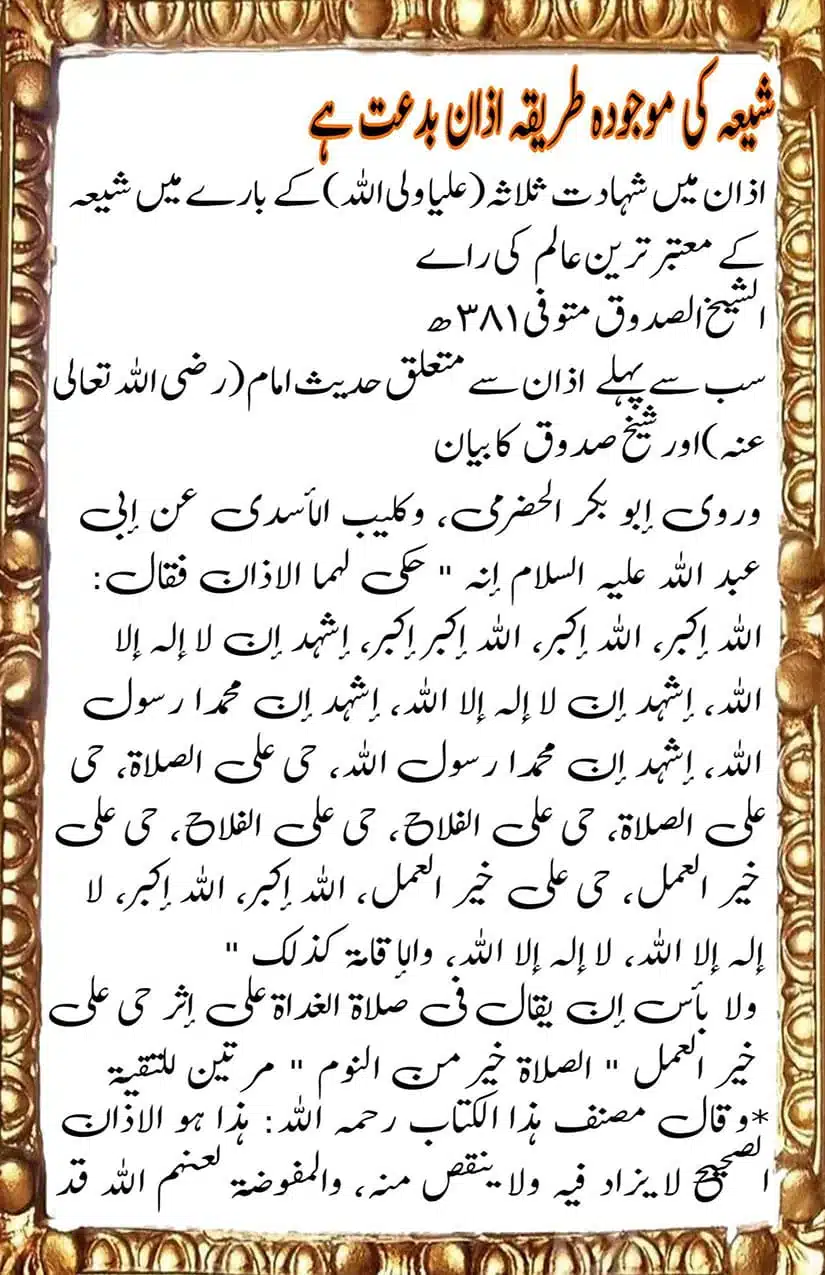 شیعہ کی موجودہ طریقہ اذان بدعت ہے
اذان میں شہادت ثلاثہ(علیا ولی اللہ)کے بارے میں شیعہ
کے معتبر ترین عالم کی راے
الشیخ الصدوق متوفی ۳۸۱ھ
سب سے پہلے اذان سے متعلق حدیث امام(رضی اللہ تعالی
عنہ)اور شیخ صدوق کا بیان
وروى إبو بكر الحضرمى، وكليب الأسدى عن إبى
عبد الله عليه السلام إنه " حكى لهما الاذان فقال:
الله إكبر، الله إكبر، الله إكبر إكبر، إشهد إن لا إله إلا
الله، إشهد إن لا إله إلا الله، إشهد إن محمدا رسول
الله، إشهد إن محمدا رسول الله، حى على الصلاة، حى
على الصلاة، حى على الفلاح، حى على الفلاح، حى على
خير العمل، حى على خير العمل، الله إكبر، الله إكبر، لا
إله إلا الله، لا إله إلا الله، والإقامة كذلك "
ولا بأس إن يقال فى صلاة الغداة على إثر حى على
خير العمل " الصلاة خير من النوم " مرتين للتقية
*وقال مصنف هذا الكتاب رحمه الله: هذا هو الاذان
الصحيح لا يزاد فيه ولا ينقص منه، والمفوضة لعنهم الله قد